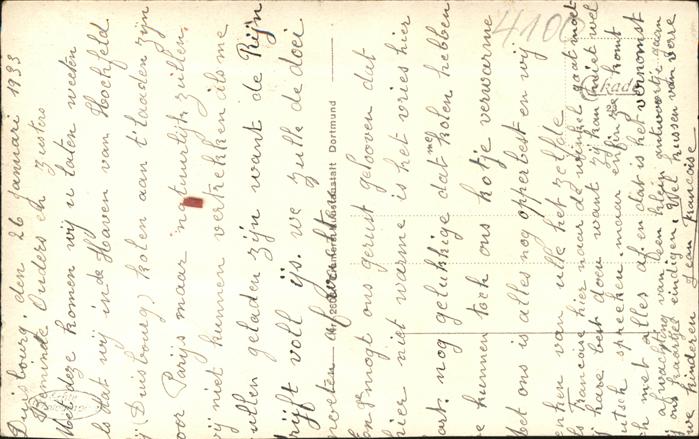 Duisbourg, den 26 Januari 1933
Beminde Ouders en Zusters
Met deze komen wij u laten weeten
als dat wij in de Haaven van Hochfeld
bij (Duisbourg) kolen aan t'laaden zijn
voor Parijs maar natuurlijk zullen
wij niet kunnen vertrekken als me
zullen geladen zijn want de Rijn
drijft voll ijs. we zulle de dooi
moeten
En 't moogt ons gerust gelooven dat
hier niet warme is het vries hier
art. nog gelukkige dat me kolen hebben
we kunnen toch ons kotje verwarme
Met ons is alles nog opperbest en wij
enken van ulle het zelfde
als Francoise hier naar de winkel gaat moet
zij hare best doen want zij kan niet wel
Duitsch spreeken. maar enfin ze komt
toch met alles af en dat is het vornomst
In afwachting van een klein antwoortje gaan
wij ons kaartje eindigen. Wel kussen van verre
uwe kinderen Jean, Francoise
Kad
4100
Dortmund